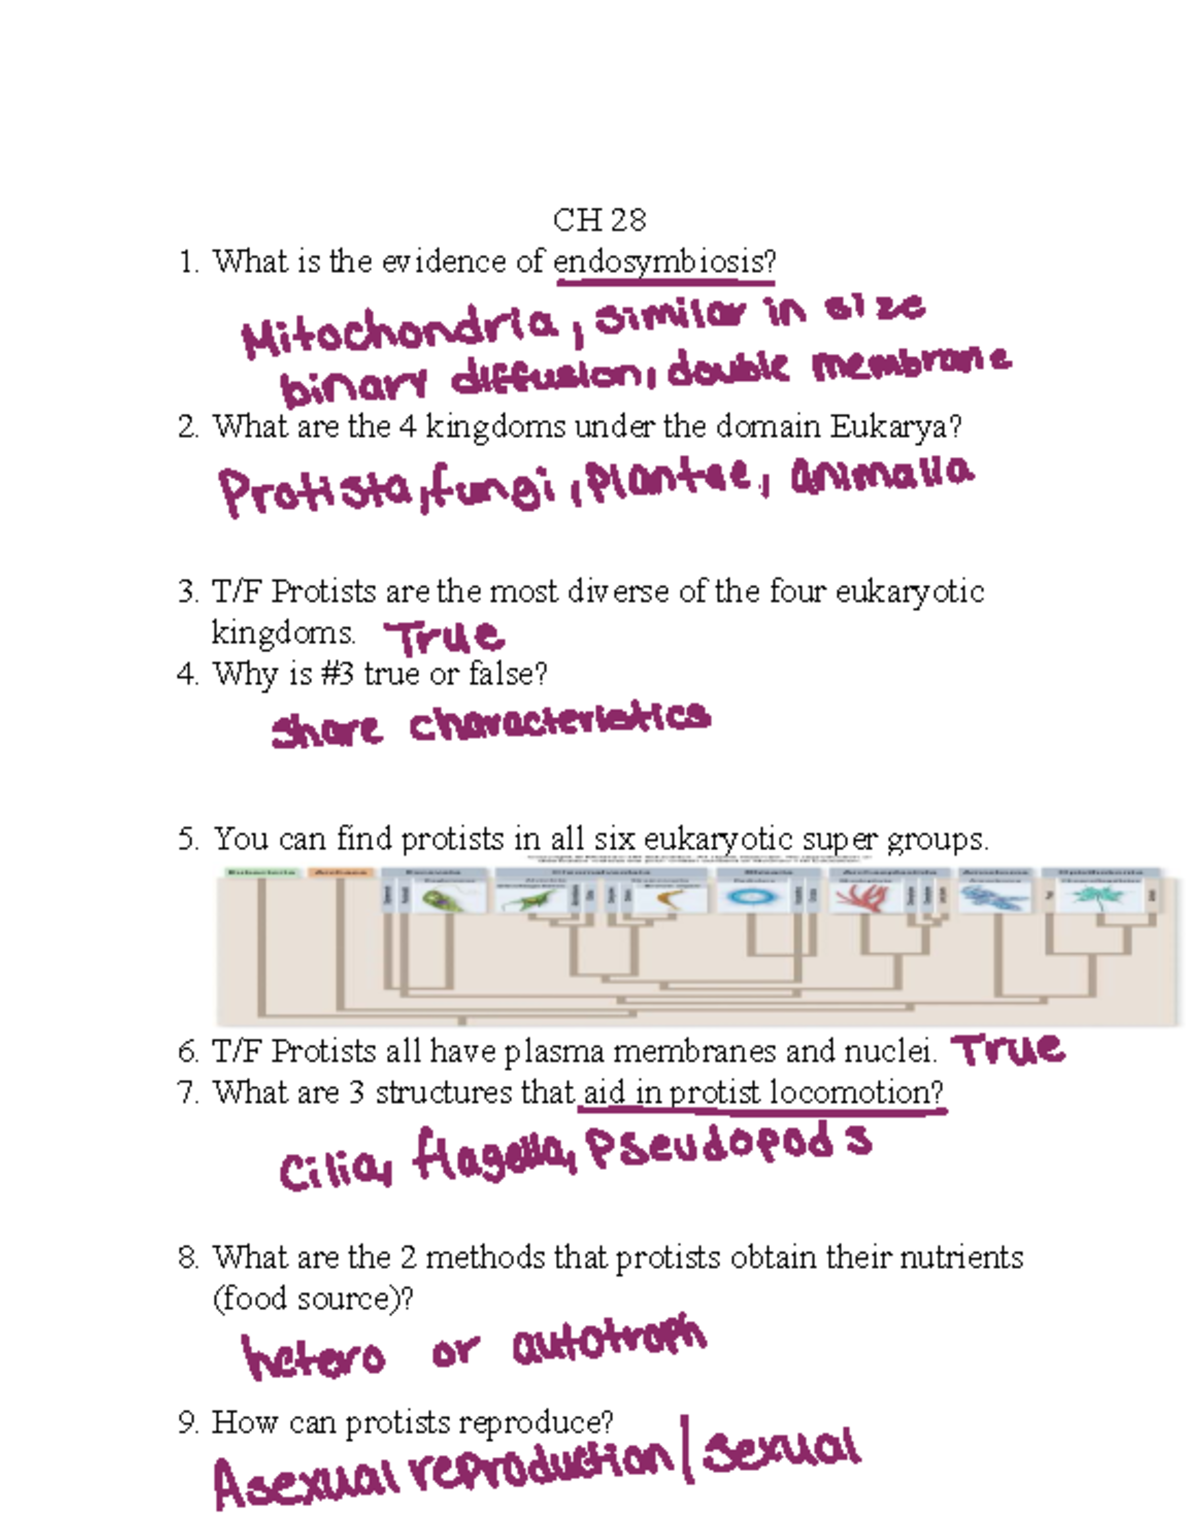 CH 28
1. What is the evidence of endosymbiosis?
Mitochondria, similar in size
binary diffusion, double membrane
2. What are the 4 kingdoms under the domain Eukarya?
Protista, fungi, Plantae, animalia
3. T/F Protists are the most diverse of the four eukaryotic
kingdoms. True
4. Why is #3 true or false?
share characteristics
5. You can find protists in all six eukaryotic super groups.
Eubacteria Archaea Excavata Chromalveolata Rhizaria Archaeplastida Amoebozoa Opisthokonta
6. T/F Protists all have plasma membranes and nuclei. True
7. What are 3 structures that aid in protist locomotion?
Cilia, flagella, Pseudopods
8. What are the 2 methods that protists obtain their nutrients
(food source)?
hetero or autotroph
9. How can protists reproduce?
Asexual reproduction/sexual